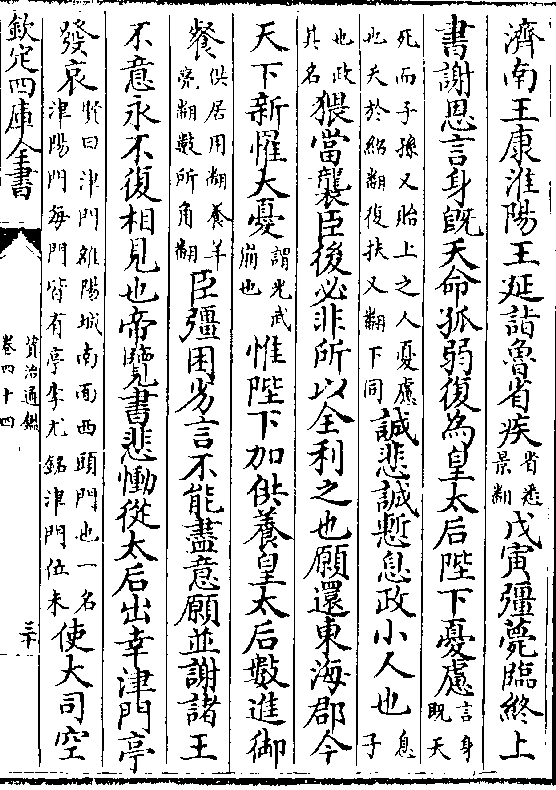 濟南王康淮陽王延詣魯省疾省悉景翻戊寅彊薨臨終上
書謝恩言身旣夭命孤弱復爲皇太后陛下憂慮言身旣夭
死而子孫又貽上之人憂慮也夭於紹翻復扶又翻下同誠悲誠慙息政小人也息子
也政其名猥當襲臣後必非所以全利之也願還東海郡今
天下新罹大憂謂光武崩也惟陛下加供養皇太后數進御
餐供居用翻養羊亮翻數所角翻臣彊困劣言不能盡意願並謝諸王
不意永不復相見也帝覽書悲慟從太后出幸津門亭
發哀賢曰津門雒陽城南面西頭門也一名津陽門每門皆有亭李尤銘津門位未使大司空
欽定四庫全書
資治通鑑
卷四十四
三十